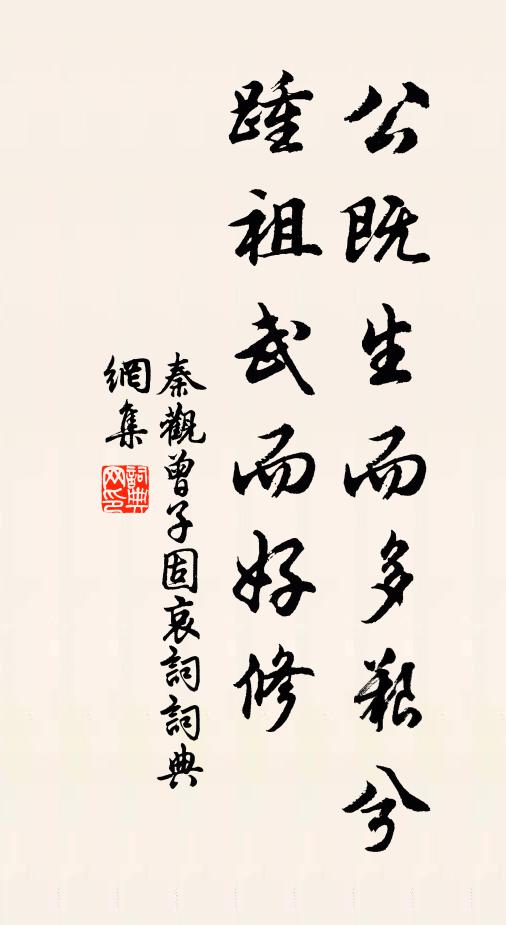 公既生而多艱兮
踵祖武而好修
秦觀曾子固哀詞詞典
網集
詞典網印